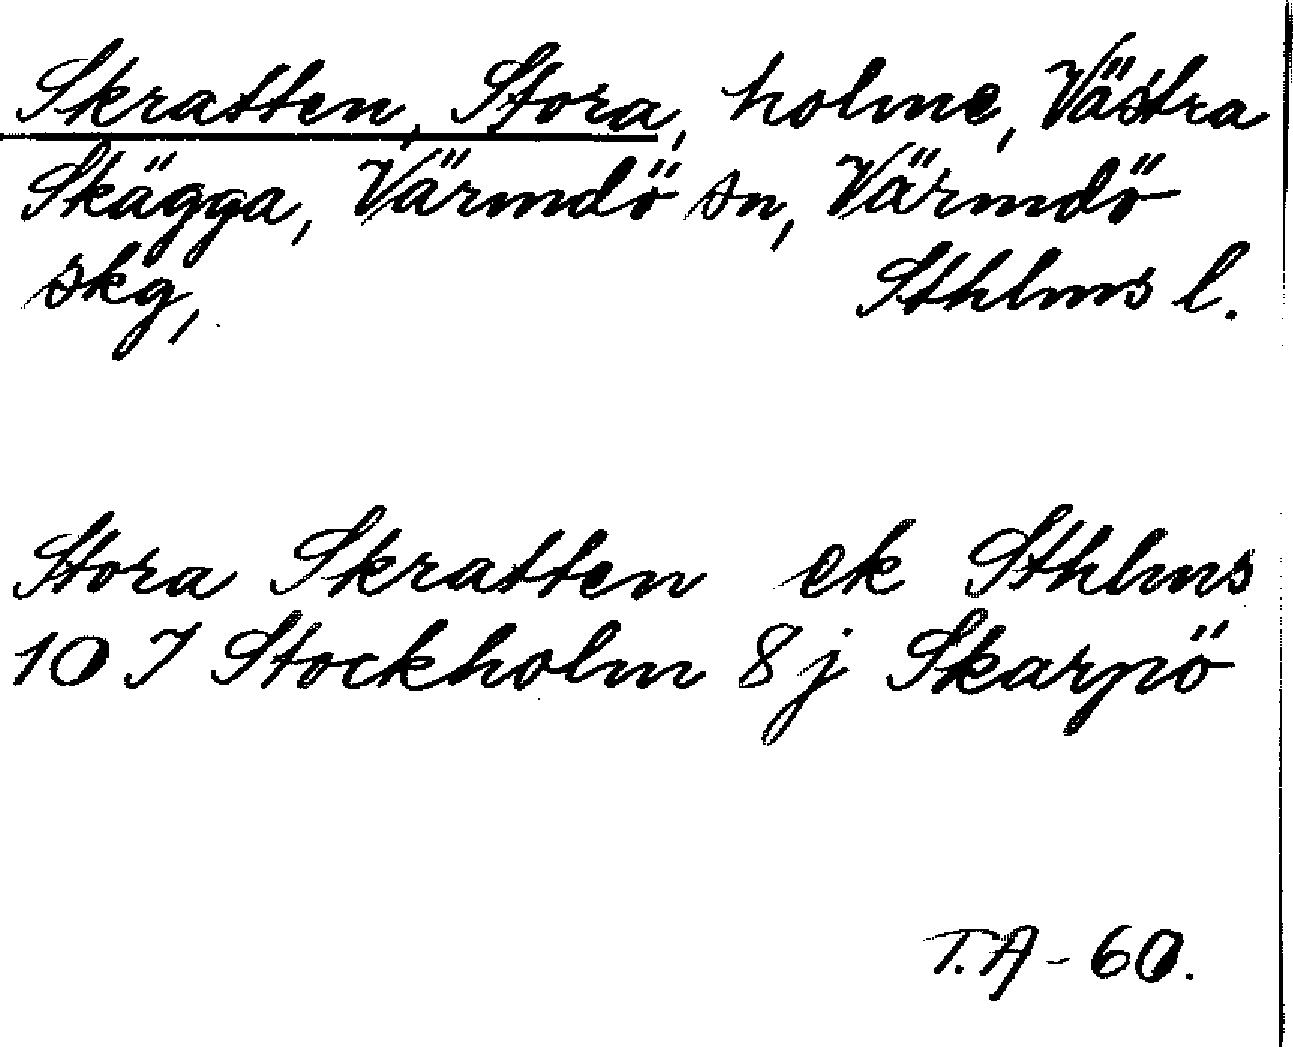 Skratten, Stora, holme, Västra
Skägga, Värmdö sn, Värmdö
skg, Sthlms l.
Stora Skratten ek Sthlms
10 I Stockholm 8j Skarpö
T.A - 60.